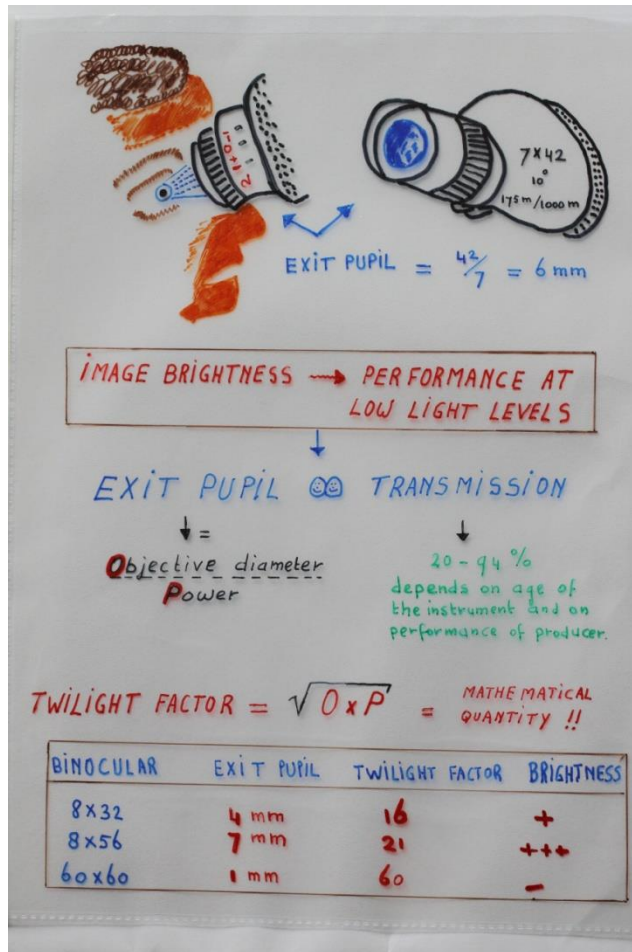 2 1 + 0 -
7X42
10°
175m/1000m
EXIT PUPIL = 42/7 = 6 mm
IMAGE BRIGHTNESS → PERFORMANCE AT
LOW LIGHT LEVELS
EXIT PUPIL TRANSMISSION
=
Objective diameter
Power
20 - 94 %
depends on age of
the instrument and on
performance of producer.
TWILIGHT FACTOR = √O x P = MATHEMATICAL
QUANTITY !!
BINOCULAR EXIT PUPIL TWILIGHT FACTOR BRIGHTNESS
8X32 4 mm 16 +
8X56 7 mm 21 +++
60x60 1 mm 60 -